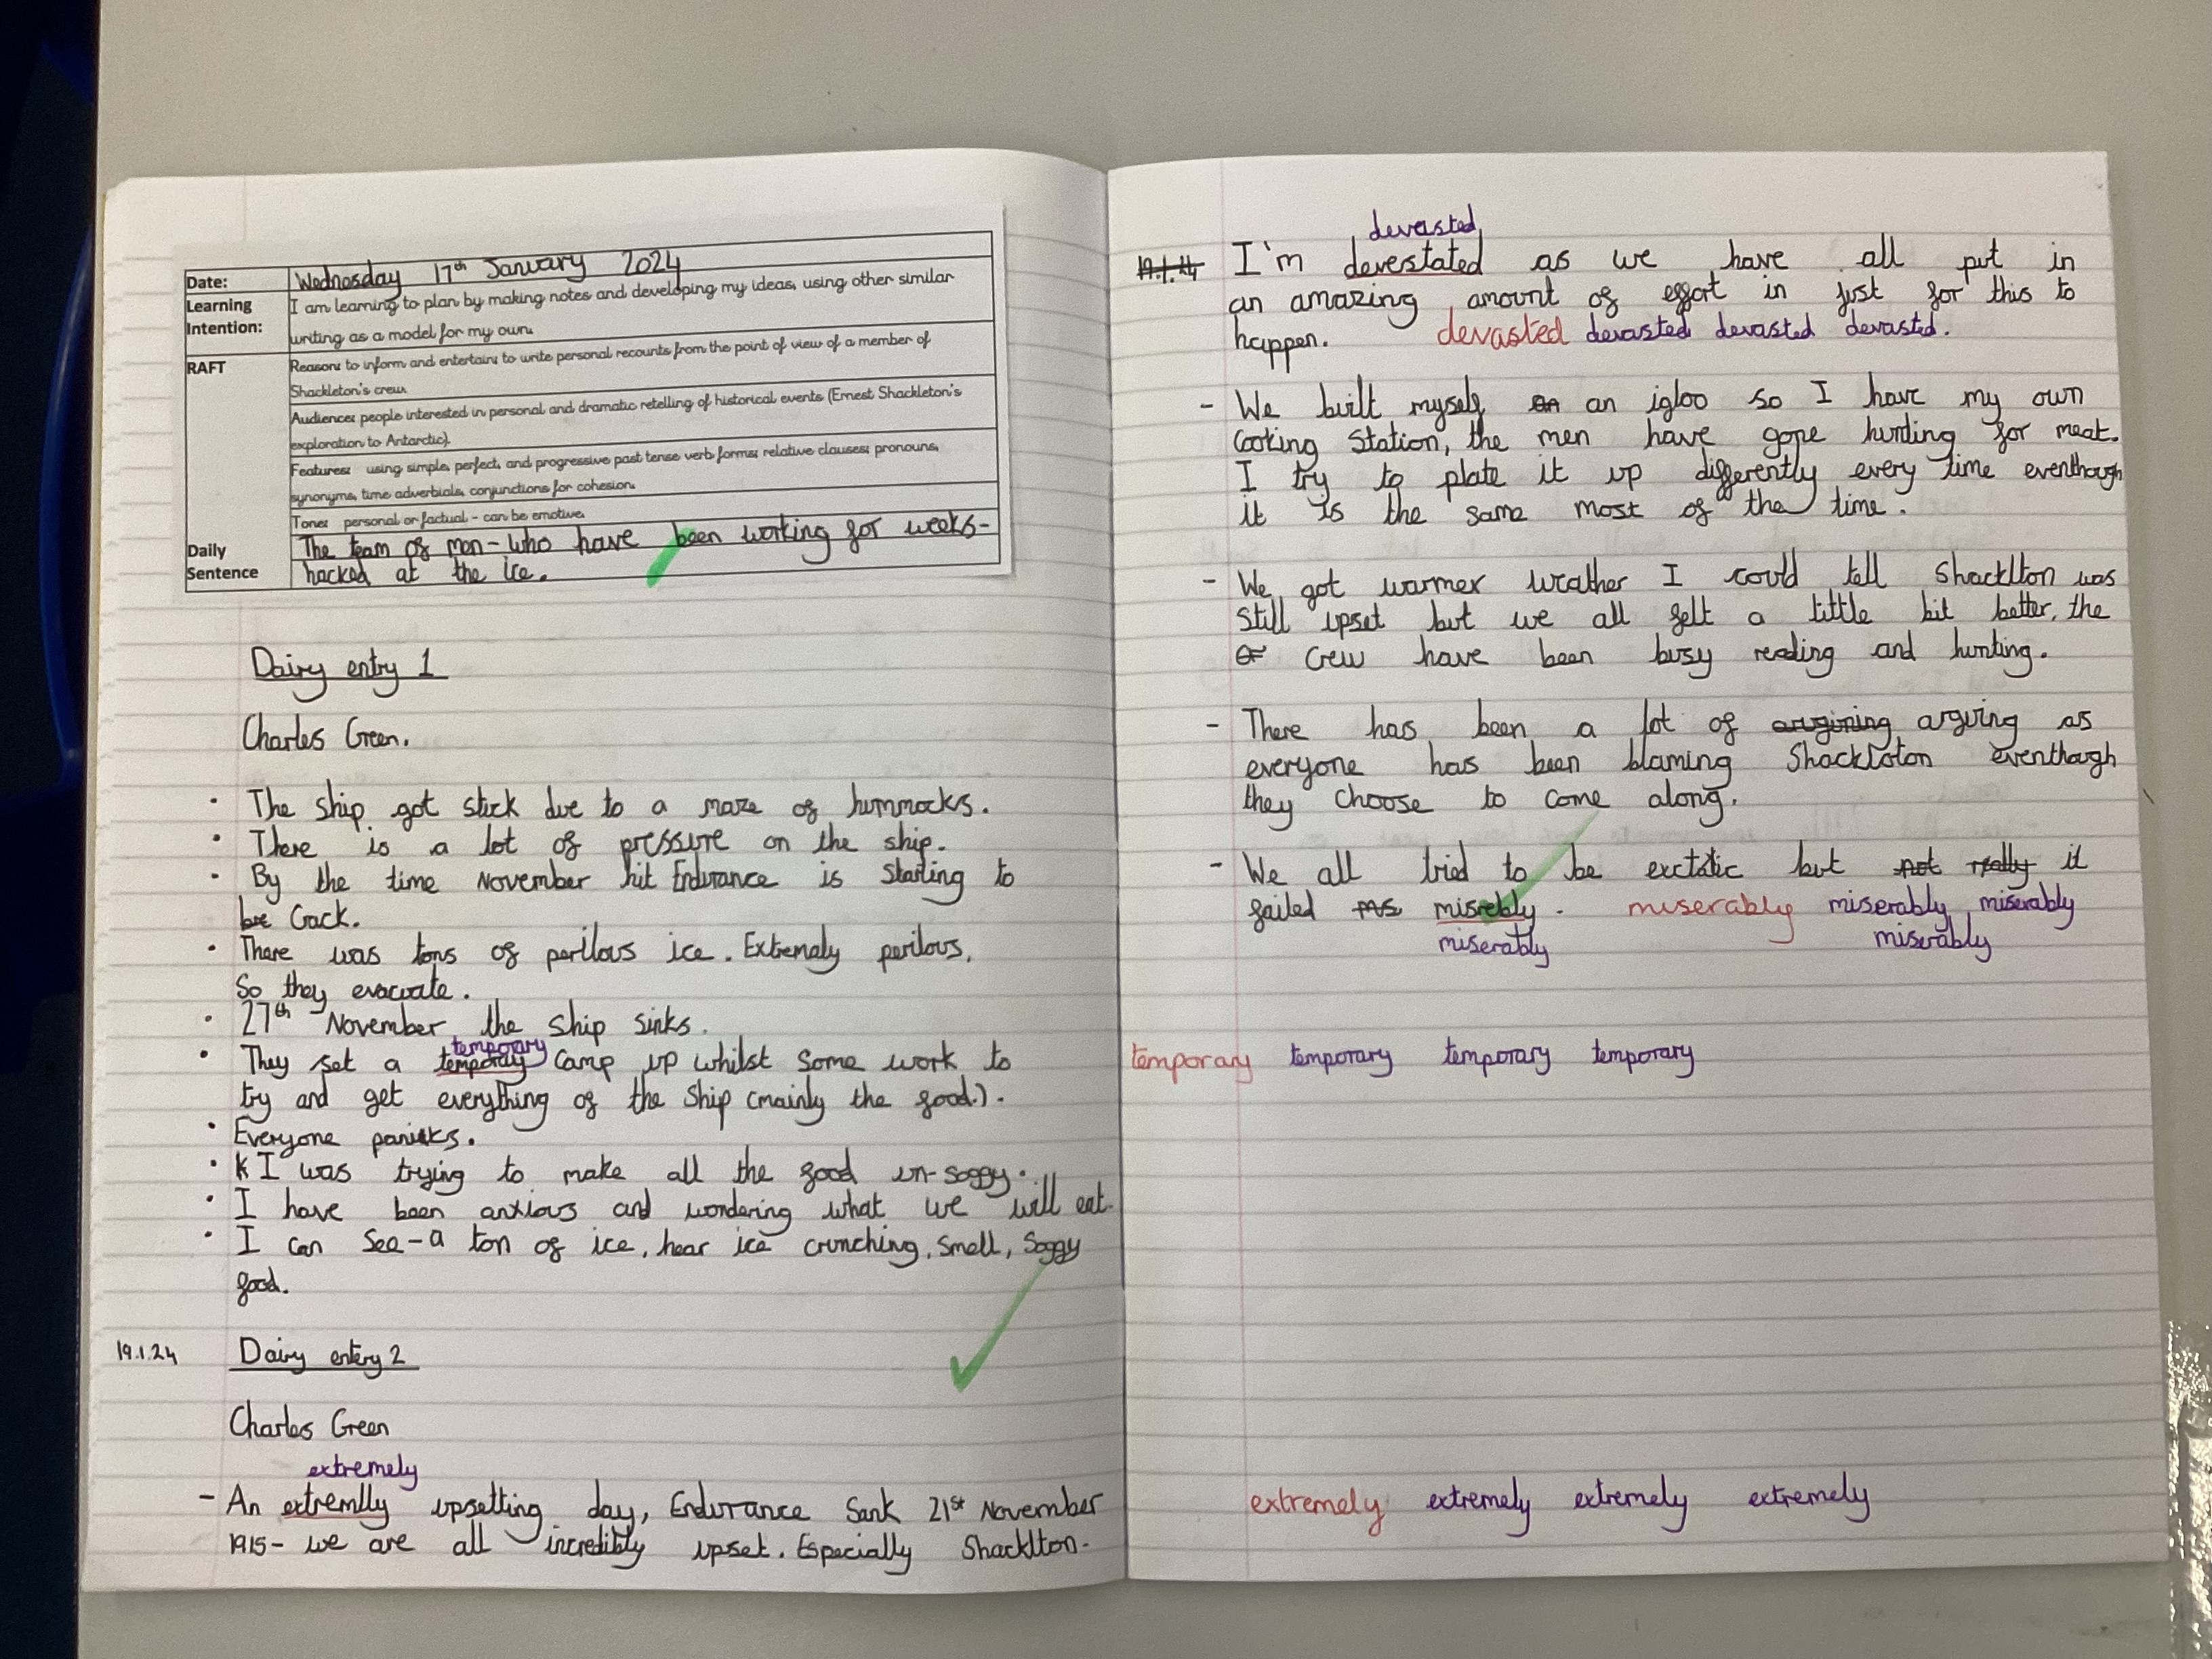 Date: Wednesday 17th January 2024
Learning Intention: I am learning to plan by making notes and developing my ideas, using other similar
writing as a model for my own.
RAFT
Reason: to inform and entertain: to write personal recounts from the point of view of a member of
Shackleton's crew.
Audience: people interested in personal and dramatic retelling of historical events (Ernest Shackleton's
exploration to Antarctic).
Features: using simple, perfect, and progressive past tense verb forms; relative clauses; pronouns,
synonyms, time adverbials, conjunctions for cohesion.
Tone: personal or factual - can be emotive.
Daily Sentence
The team of men - who have been working for weeks -
hacked at the ice.
Dairy entry 1
Charles Green.
• The ship got stuck due to a maze of hummocks.
• There is a lot of pressure on the ship.
• By the time November hit Endurance is starting to
bre Crack.
• There was tons of perilous ice. Extremely perilous,
So they evacuate.
• 27th November the ship sinks.
temporary
• They set a temporay camp up whilst some work to
try and get everything of the ship (mainly the food.).
• Everyone panicks.
• I was trying to make all the food un-soggy.
• I have been anxious and wondering what we will eat.
• I can see - a ton of ice, hear ice crunching, smell, soggy
food.
19.1.24 Dairy entry 2
Charles Green
extremely
- An extremlly upsetting day, Endurance Sank 21st November
1915 - we are all incredibly upset. Especially Shacklton.
devasted
19.1.24 I'm deverstated as we have all put in
an amazing amount of effort in just for this to
happen. devasted devasted devasted devasted.
- We built myself an an igloo so I have my own
Cooking Station, the men have gone hunting for meat.
I try to plate it up differently every time eventhough
it is the same most of the time.
- We got warmer weather I could tell Shacklton was
still upset but we all felt a little bit better, the
crew have been busy reading and hunting.
- There has been a lot of arguing as
everyone has been blaming Shackloton eventhough
they choose to come along.
- We all tried to be exctatic but not really it
failed misrebly. miserably miserably miserably
miserably miserably
temporary temporary temporary temporary
extremely extremely extremely extremely